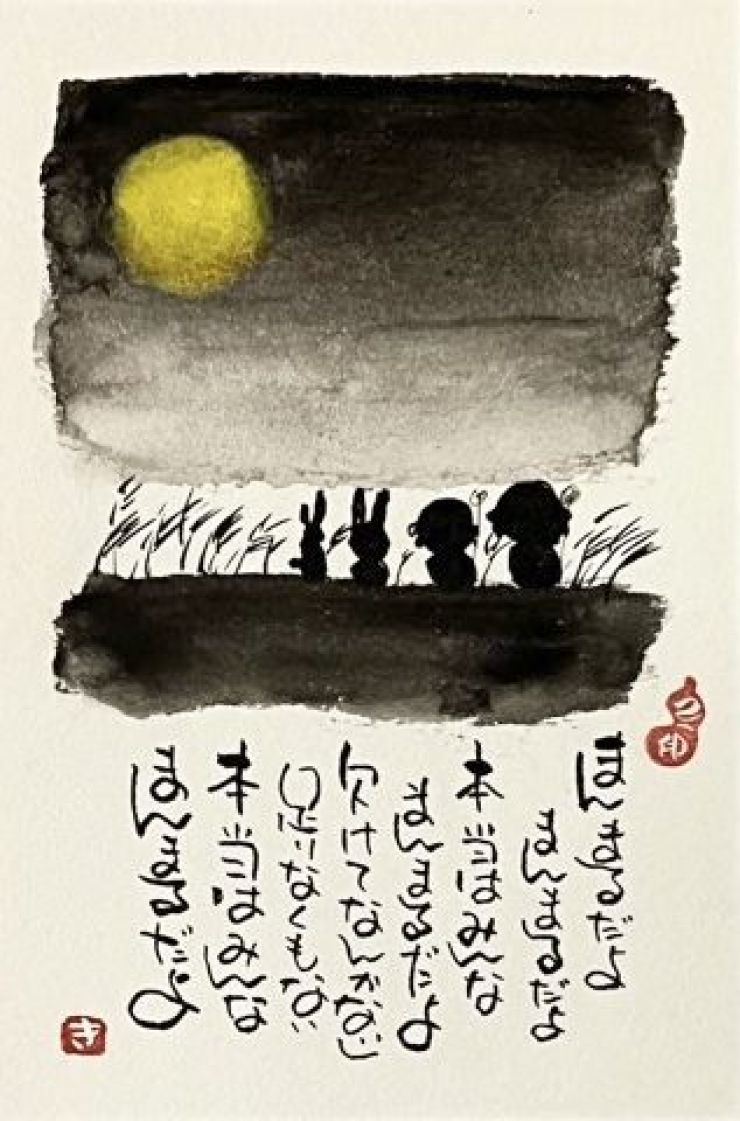 まんまるだよ
まんまるだよ
本当はみんな
まんまるだよ
欠けてなんかない
足りなくもない
本当はみんな
まんまるだよ
き